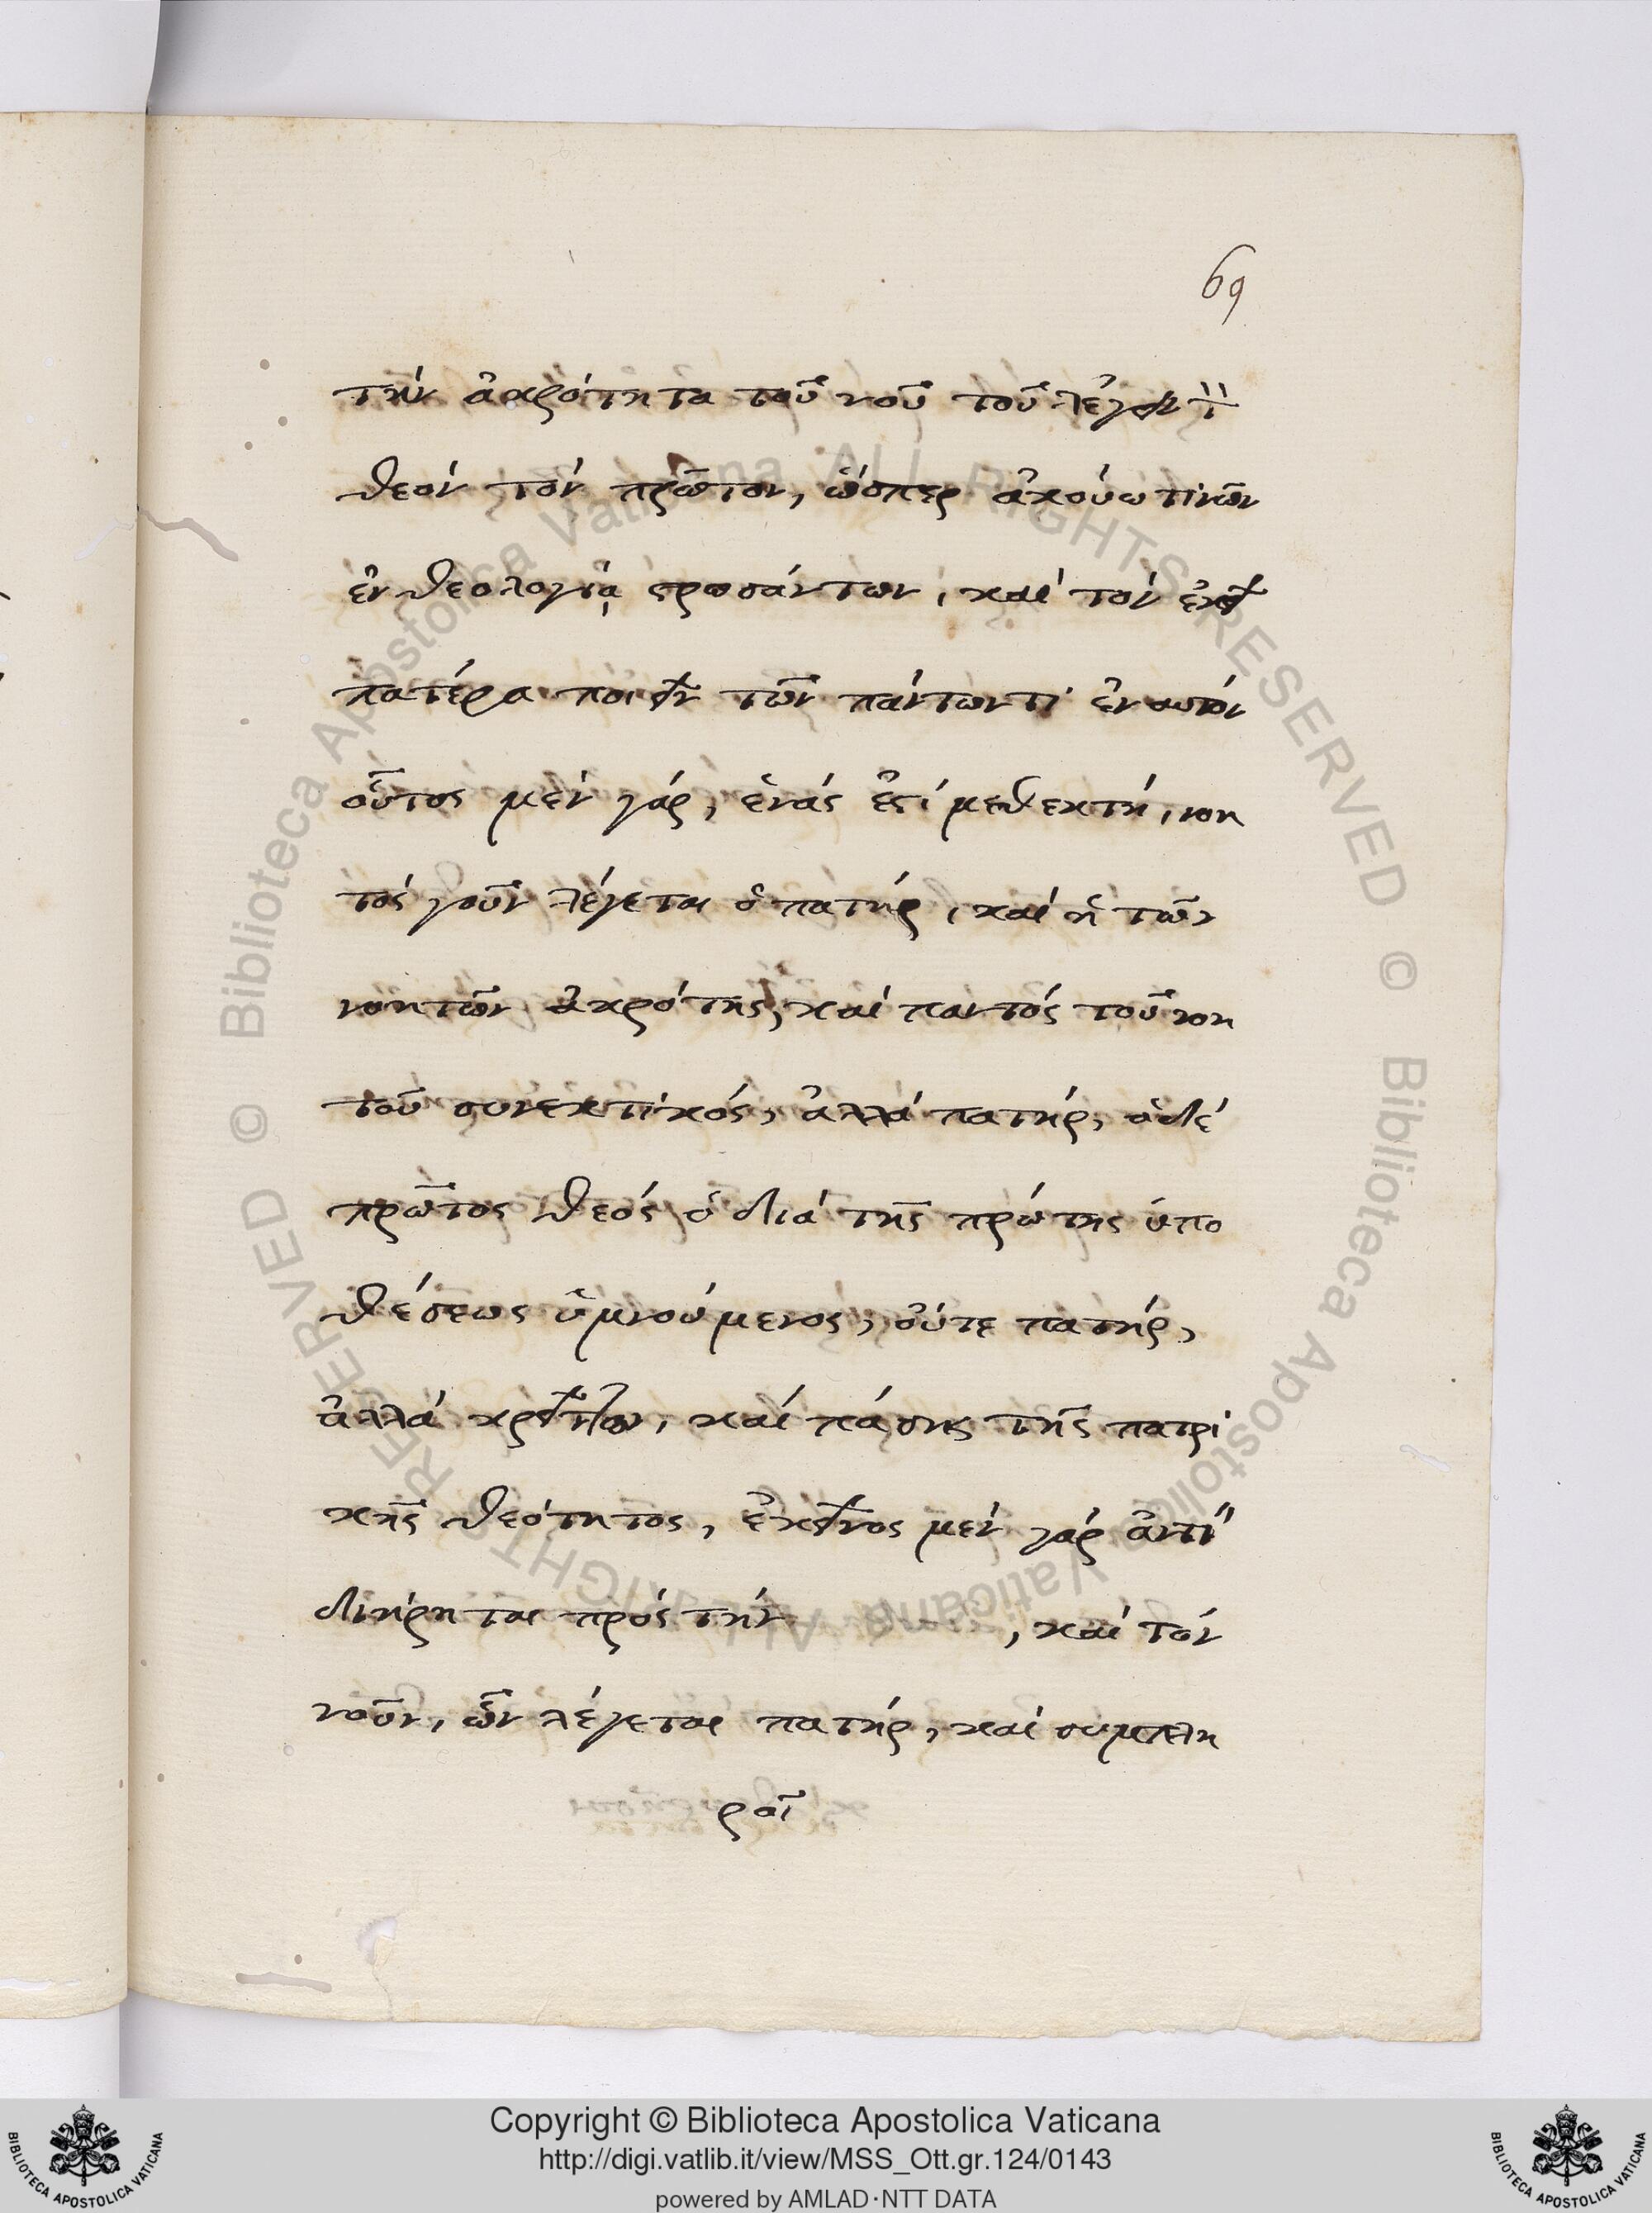 69
τὴν ἀκρότητα τοῦ νοῦ τοῦ λέγειν τὸ
θεὸν τὸν πρῶτον, ὥσπερ ἀκούω τινῶν
ἐν θεολογίᾳ , καὶ τὸν ἐκεῖ
πατέρα ποιεῖν τῶν πάντων τί ἐναυτόν
οὗτος μὲν γάρ, ἑνάς ἐστί μεθεκτή, νοη
τός γοῦν λέγεται ὁ πατήρ, καὶ ἡ τῶν
νοητῶν ἀκρότης, καὶ παντός τοῦ νοη
τοῦ συνεκτικός, ἀλλὰ πατήρ, ὁ δέ
πρῶτος θεός ὁ διὰ τῆς πρώτης ὑπο
θέσεως ὑμνούμενος, οὔτε πατήρ,
ἀλλὰ κρεῖττων, καὶ πάσης τῆς πατρι
κῆς θεότητος, ἐκεῖνος μὲν γάρ ἀντι
διῄρηται πρός τὴν , καὶ τὸν
νοῦν, ὧν λέγεται πατήρ, καὶ συμπλη
ροῖ
Copyright © Biblioteca Apostolica Vaticana
http://digi.vatlib.it/view/MSS_Ott.gr.124/0143
powered by AMLAD·NTT DATA
BIBLIOTECA APOSTOLICA VATICANA
BIBLIOTECA APOSTOLICA VATICANA
© Biblioteca Apostolica Vaticana ALL RIGHTS RESERVED
© Biblioteca Apostolica Vaticana ALL RIGHTS RESERVED